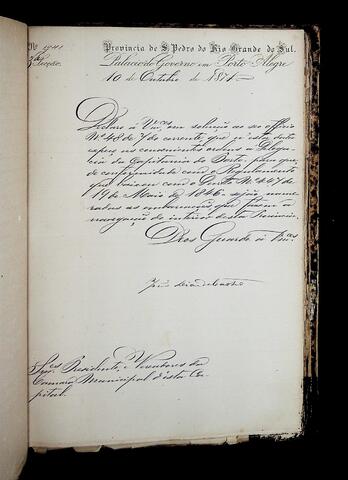 Provincia de S. Pedro do Rio Grande do Sul.
Nº 1941
3ª Secção.
Palacio do Governo em Porto Alegre
10 de Outubro de 1871
Declaro á Vmces, em solução ao seo officio
Nº 48 de 7 do corrente, que já nesta data
expeço as convenientes ordens á Delega-
cia da Capitania do Porto, para que,
de conformidade com o Regulamento
que baixou com o Decreto Nº 447 de
19 de Maio de 1846, sejão nume-
radas as embarcações que fazem a
navegação do interior desta Provincia.
Deos Guarde á Vmces
Snres Presidente, e Vereadores da
Camara Municipal d'esta Ca-
pital.